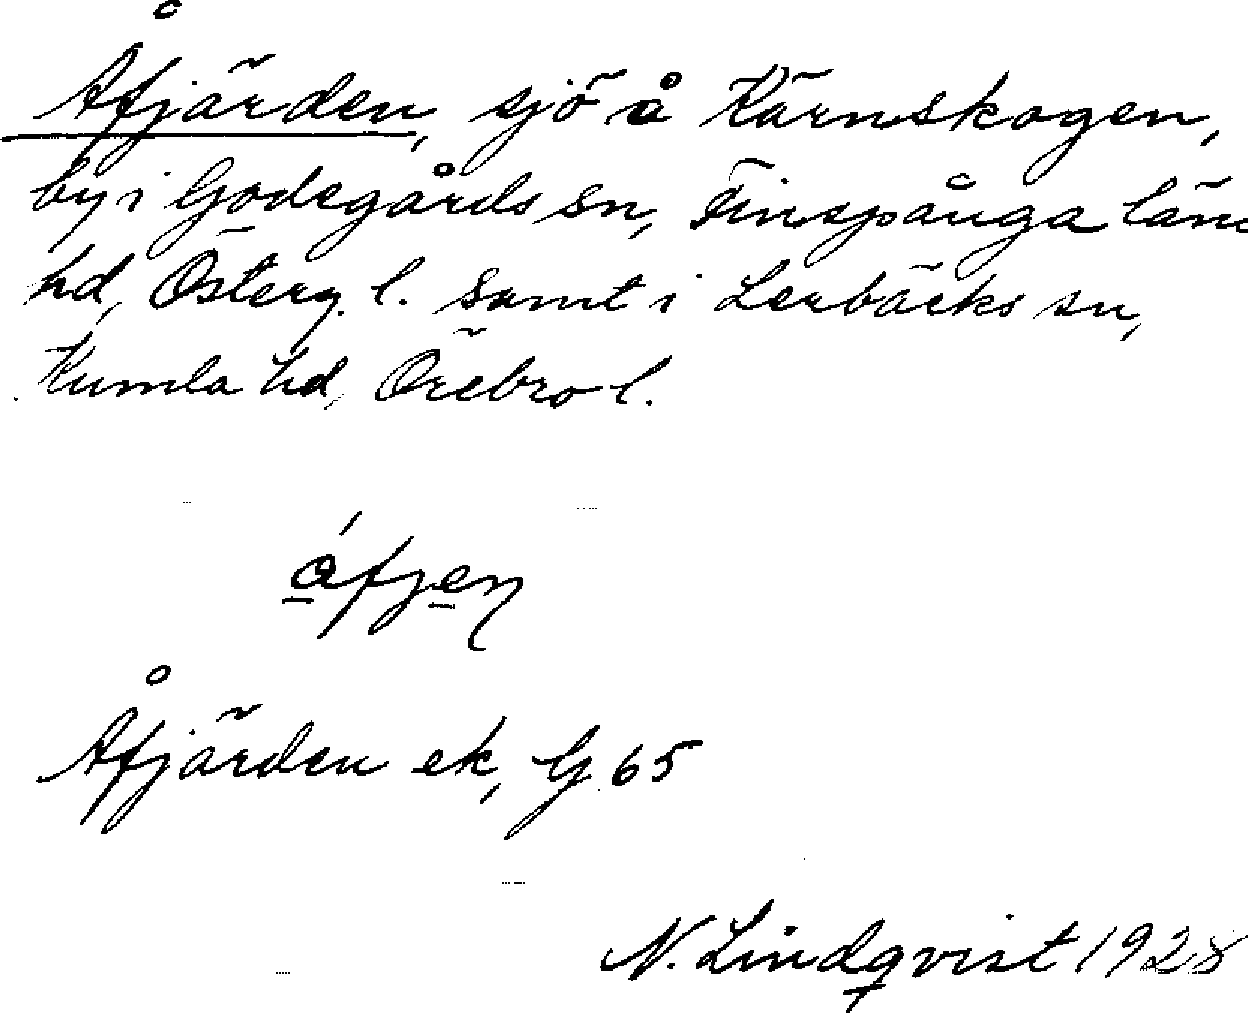 Åfjärden, sjö å Kärnskogen,
by i Godegårds sn, Finspånga län
hd, Österg. l. samt i Lerbäcks sn,
Kumla hd, Örebro l.
åfjen
Åfjärden ek, G 65
N. Lindqvist 1928